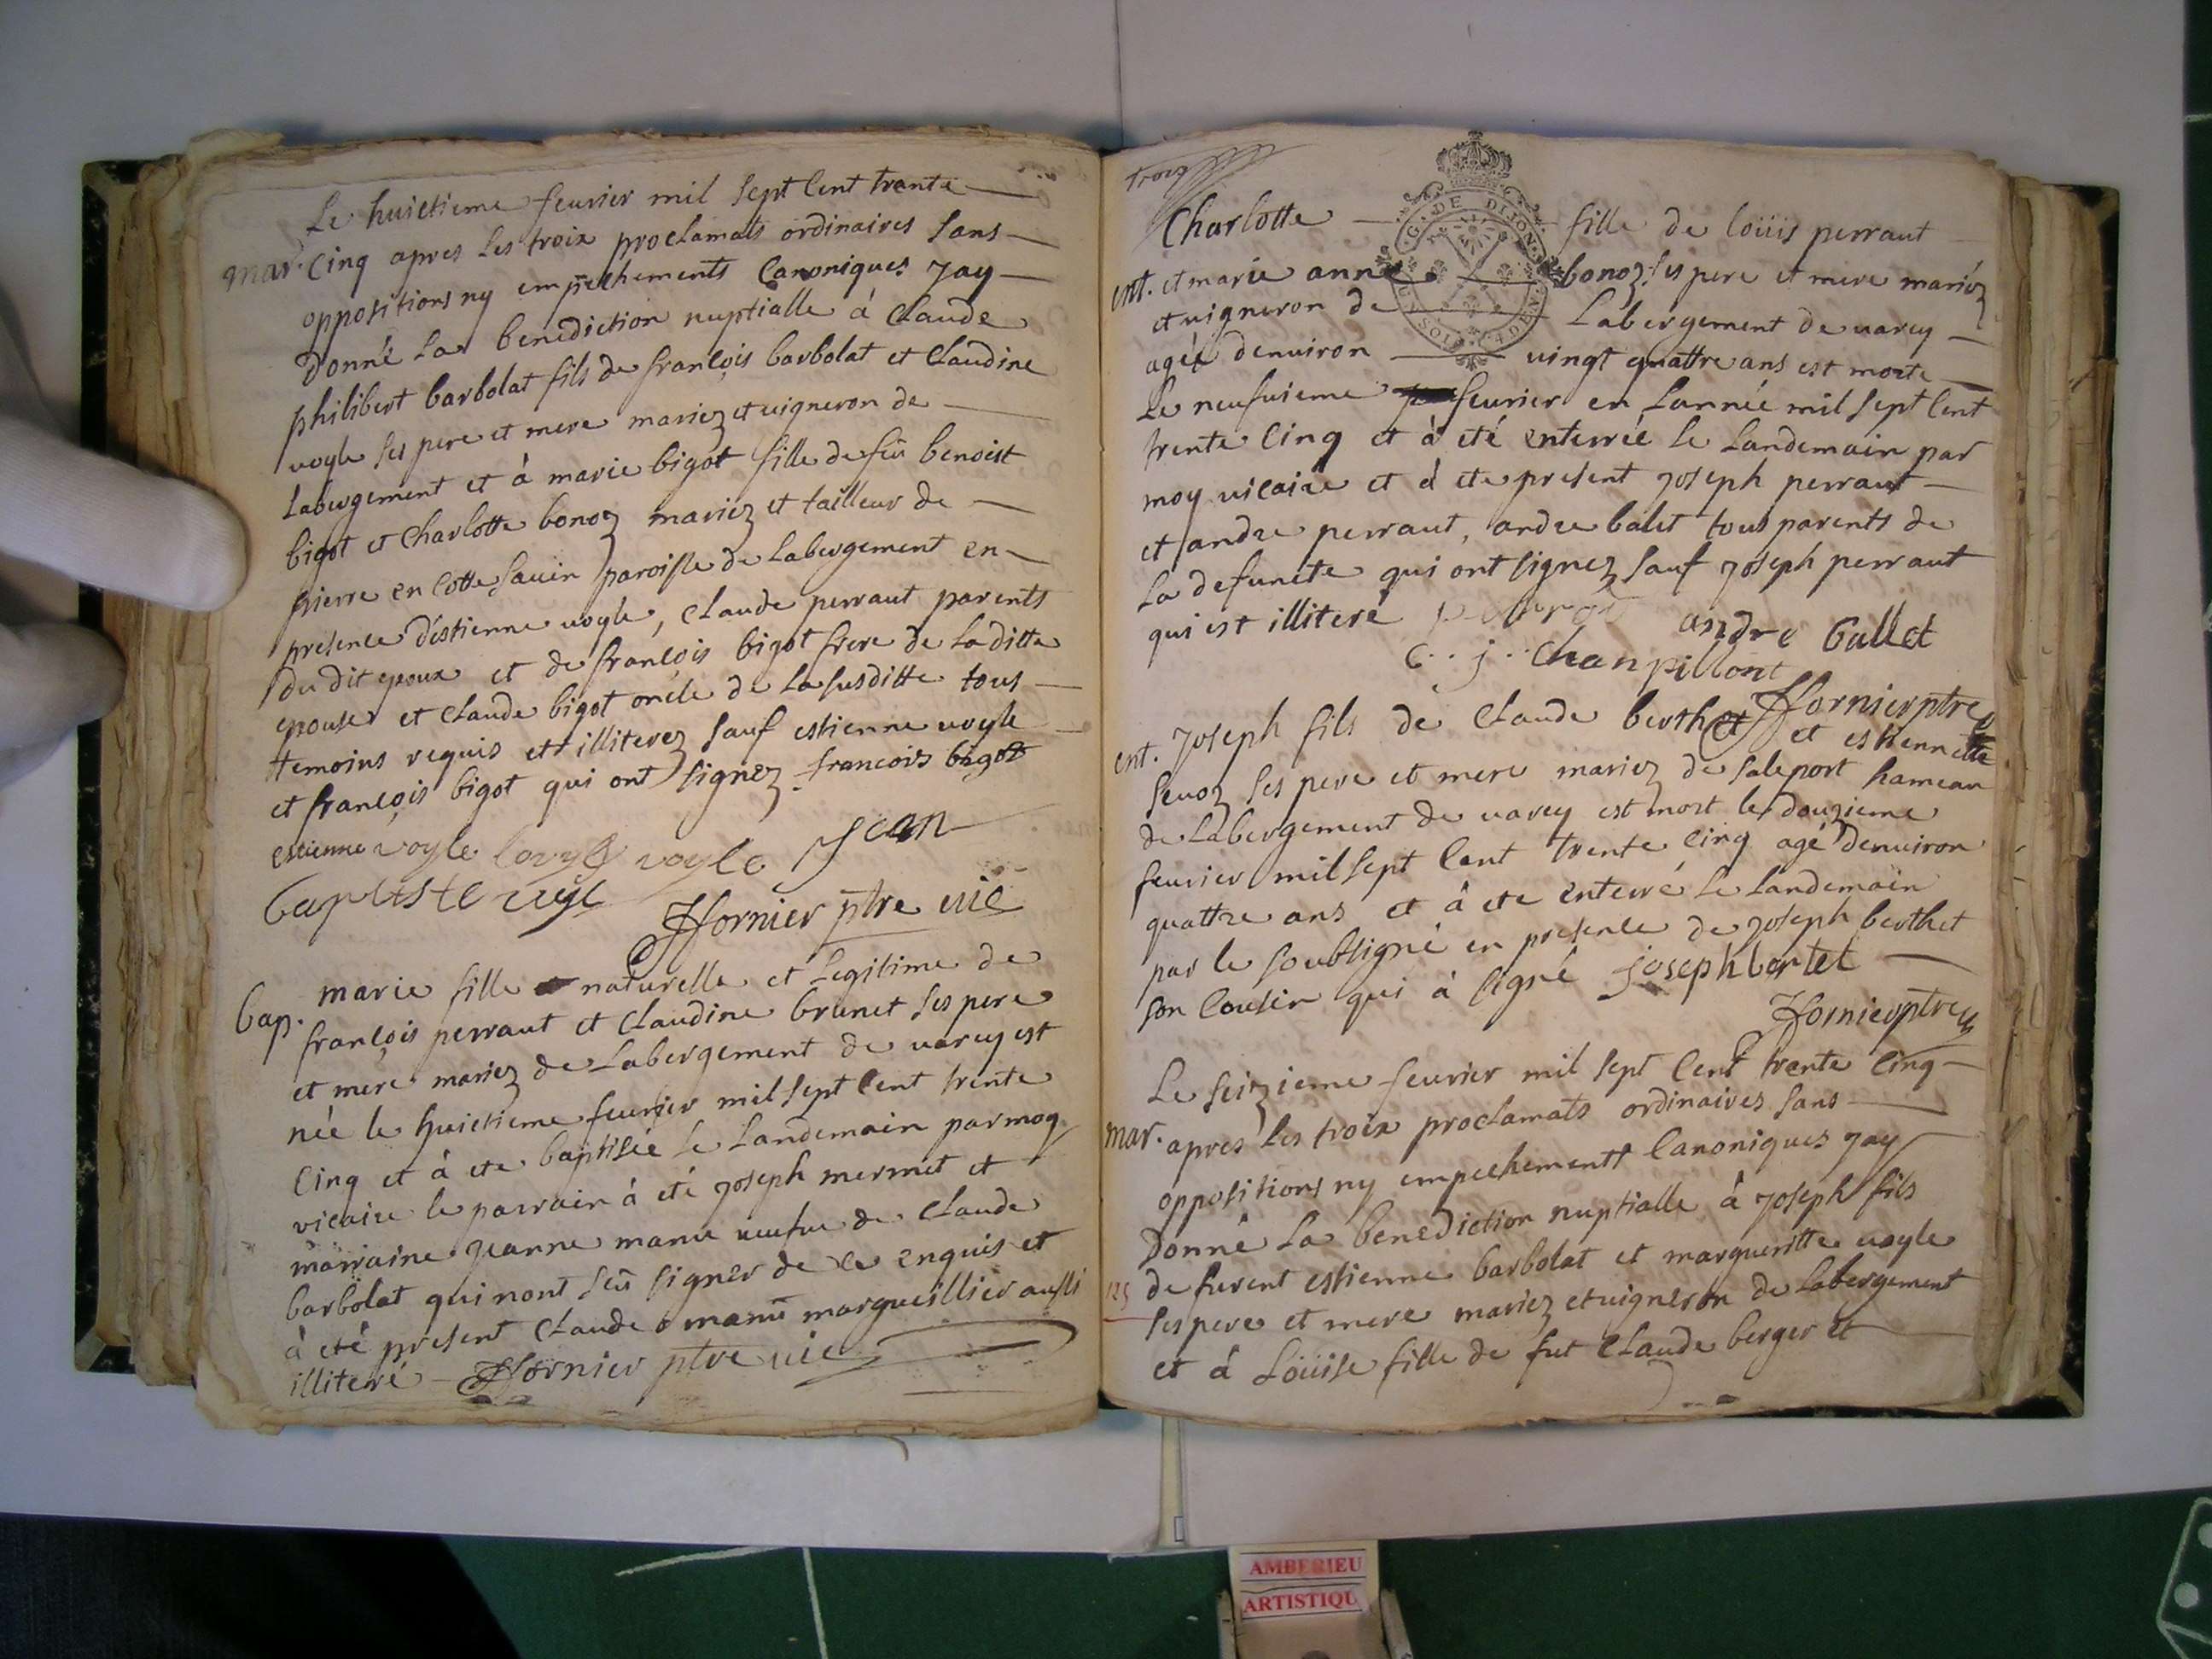 Le huictieme feurier mil sept Cent trente
mar. Cinq apres les troix proclamats ordinaires sans
oppositions ny empechements Canoniques jay
donné la benediction nuptialle à Claude
philibert barbolat fils de françois barbolat et Claudine
uogle ses pere et mere mariez et uigneron de
Labergement et à marie bigot fille de feu benoist
bigot et Charlotte bonoz mariez et tailleur de
pierre en Cotte sauin paroisse de Labergement en
presence d'estienne uogle, Claude perraut parents
du dit epoux et de françois bigot frere de la ditte
epouse et Claude bigot oncle de la susditte tous
temoins requis et illiterez sauf estienne uogle
et françois bigot qui ont signez francois bigot
estienne voyle voyle jean
baptiste
ffornier ptre vic
bap. marie fille naturelle et legitime de
françois perraut et Claudine brunet ses pere
et mere mariez de Labergement de uarey est
née le huictieme feurier mil sept Cent trente
Cinq et à ete baptisée le Landemain par moy
vicaire le parrain à eté joseph mermet et
marraine jeanne manu ueufue de Claude
barbolat qui nont seu signer de ce enquis et
à eté present Claude manu margueillier aussi
illiteré ffornier ptre uic
trois
G. DE DIJON
Charlotte fille de loüis perraut
ent. et marie anne bonoz ses pere et mere mariéz
et uigneron de Labergement de uarey
agée denuiron uingt quattre ans est morte
Le neufuieme feurier en Lannée mil sept Cent
trente Cinq et à eté enterrée le Landemain par
moy uicaire et à ete present joseph perraut
et andre perraut, andre balet tous parents de
la defuncte qui ont signez sauf joseph perraut
qui est illiteré
andre ballet
c. j. chanpillont
ffornier ptre
ent. Joseph fils de Claude berthet et estiennette
seuoz ses pere et mere mariez de saleport hameau
de Labergement de uarey est mort le douzieme
feurier mil sept Cent trente Cinq agé denuiron
quattre ans et à ete enterré le Landemain
par le soubsigné en presence de joseph berthet
son Cousin qui à signé joseph bertet
ffornier ptre
Le seizieme feurier mil sept Cent trente Cinq
mar. apres les troix proclamats ordinaires sans
oppositions ny empechements Canoniques jay
donné la benediction nuptialle à joseph fils
de furent estienne barbolat et margueritte uogle
125 ses pere et mere mariez et uigneron de Labergement
et à Loüise fille de fut Claude berger et
AMBERIEU
ARTISTIQU